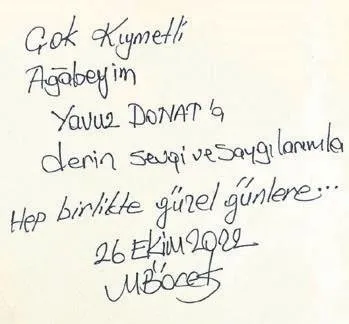 Çok Kıymetli
Ağabeyim
Yavuz DONAT'a
derin sevgi ve saygılarımla
Hep birlikte güzel günlere...
26 EKİM 2022
MBöcek